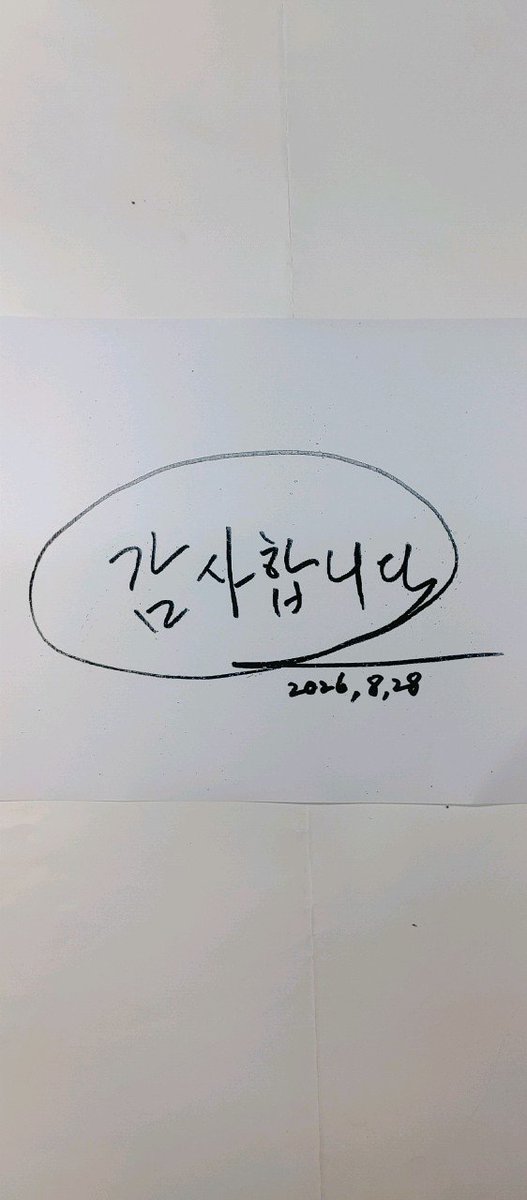 감사합니다
2026,8,28